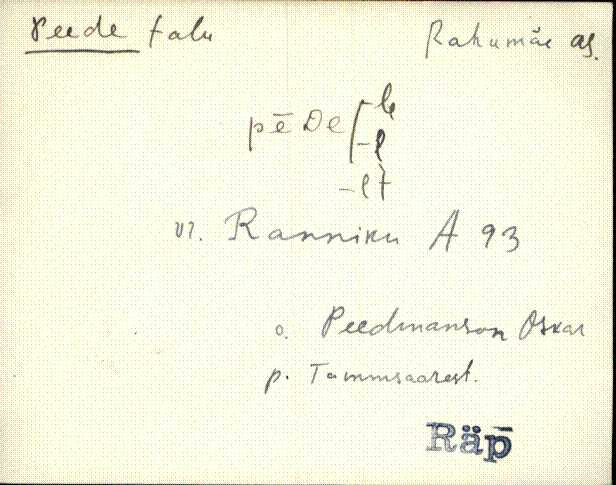 Peede talu
Rahumäe as.
pēDe -le
-l
-lt
vt. Ranniku A 93
o. Peedmanson Oskar
p. Tammsaarest.
Räp̄